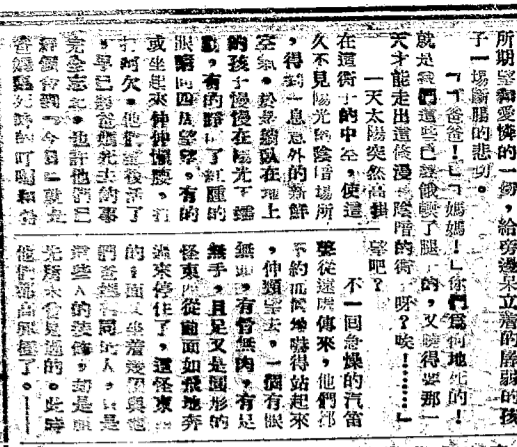 所期望和愛憐的一切，給旁邊呆立着的孱弱的孩
子一場斷腸的悲劇。
「「爸爸！」「媽媽！」你們爲何地死的！
就是我們這些已經餓軟了腿的，又曉得要那一
天才能走出這條漫長陰暗的街呀？唉！……」
一天太陽突然高掛
在這街子的中空，使這
久不見陽光的陰暗場所
，得到一息意外的新鮮
空氣。於是躺臥在地上
的孩子慢慢在陽光下蠕
動，有的睜了紅腫的
眼睛向四周望望，有的
或坐起來伸伸懶腰，
打呵欠。他們後活了
，早已將爸媽死去的事
完全忘記。也許他們已
經領會到「今日」就是
爸媽臨死時的叮囑
望吧？
不一回急燥的汽笛
聲從遠處傳來，他們都
不約而同地嚇得站起來
，伸頸望去，一個有眼
無頭，有骨無肉，有足
無手，且足又是圓形的
怪東西從面前如飛地奔
過來停住了，這怪東西
的上面又坐着幾個與他
們爸媽不同的人，但是
這些人的裝飾，却是
先所未曾見過的。此時
他們都高興極了。——